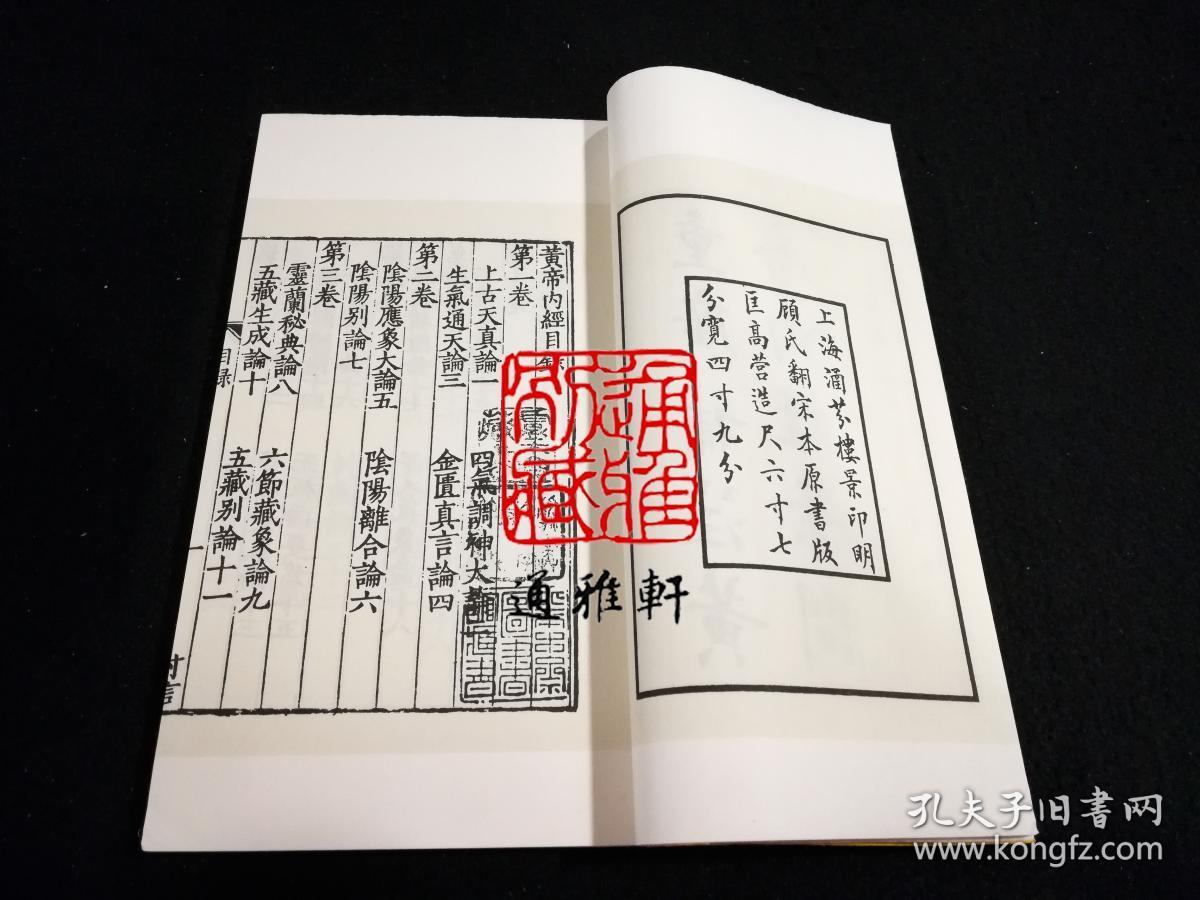 上海涵芬樓景印明
顧氏翻宋本原書版
匡高營造尺六寸七
分寬四寸九分
黃帝內經目錄
第一卷
上古天真論一
四氣調神大論二
生氣通天論三
金匱真言論四
第二卷
陰陽應象大論五
陰陽離合論六
陰陽別論七
第三卷
靈蘭秘典論八
六節藏象論九
五藏生成論十
五藏別論十一
目錄
一
通雅軒
孔夫子旧書网
www.kongfz.com